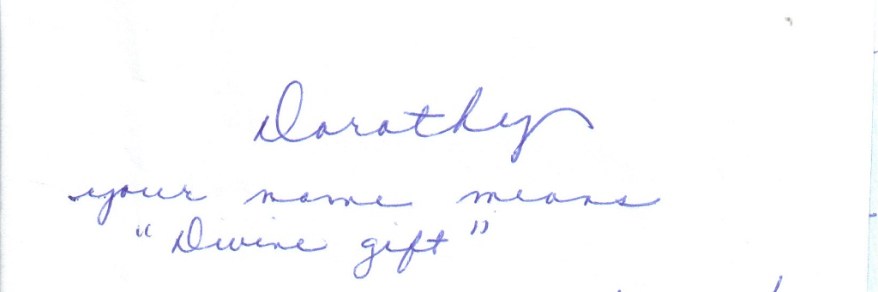 Dorothy
your name means
"Divine gift"